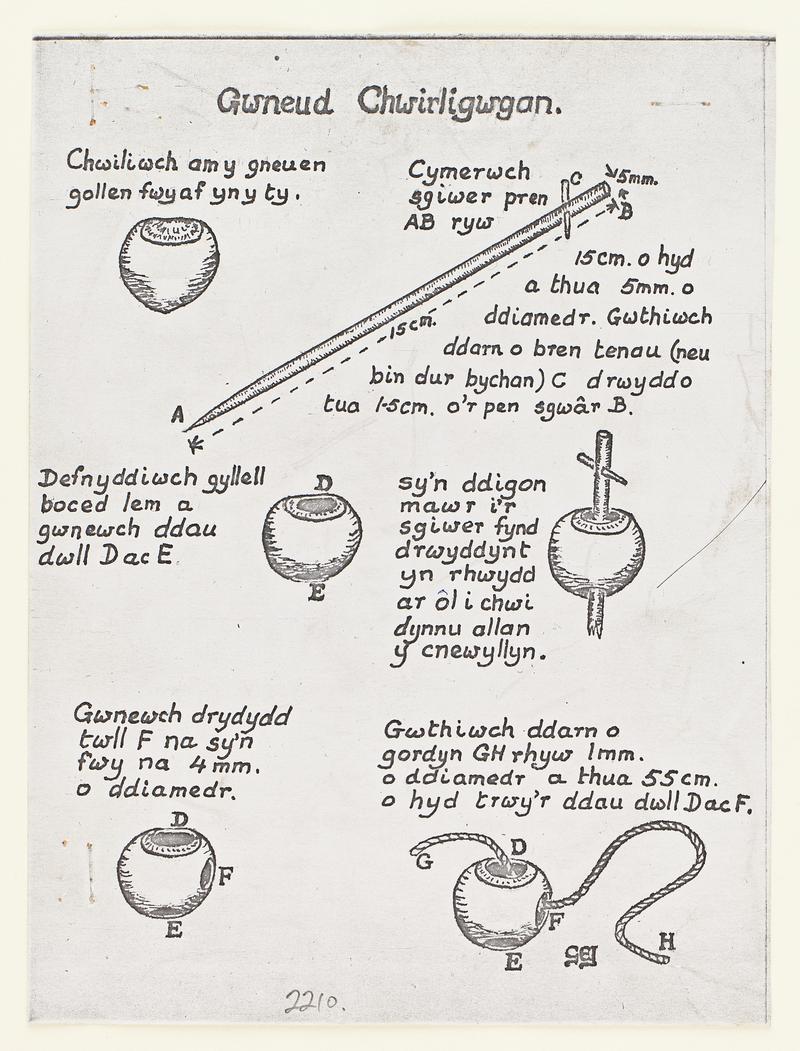 Gwneud Chwirligwgan.
Chwiliwch am y gneuen
gollen fwyaf yn y ty.
Cymerwch
sgiwer pren
AB ryw
C
5mm.
B
15cm. o hyd
a thua 5mm. o
ddiamedr. Gwthiwch
ddarn o bren tenau (neu
bin dur bychan) C drwyddo
tua 1·5cm. o'r pen sgwâr B.
15cm.
A
Defnyddiwch gyllell
boced lem a
gwnewch ddau
dwll D ac E
D
E
sy'n ddigon
mawr i'r
sgiwer fynd
drwyddynt
yn rhwydd
ar ôl i chwi
dynnu allan
y cnewyllyn.
Gwnewch drydydd
twll F na sy'n
fwy na 4mm.
o ddiamedr.
D
F
E
Gwthiwch ddarn o
gordyn GH rhyw 1mm.
o ddiamedr a thua 55cm.
o hyd trwy'r ddau dwll D ac F.
G
D
F
E
H
2210.